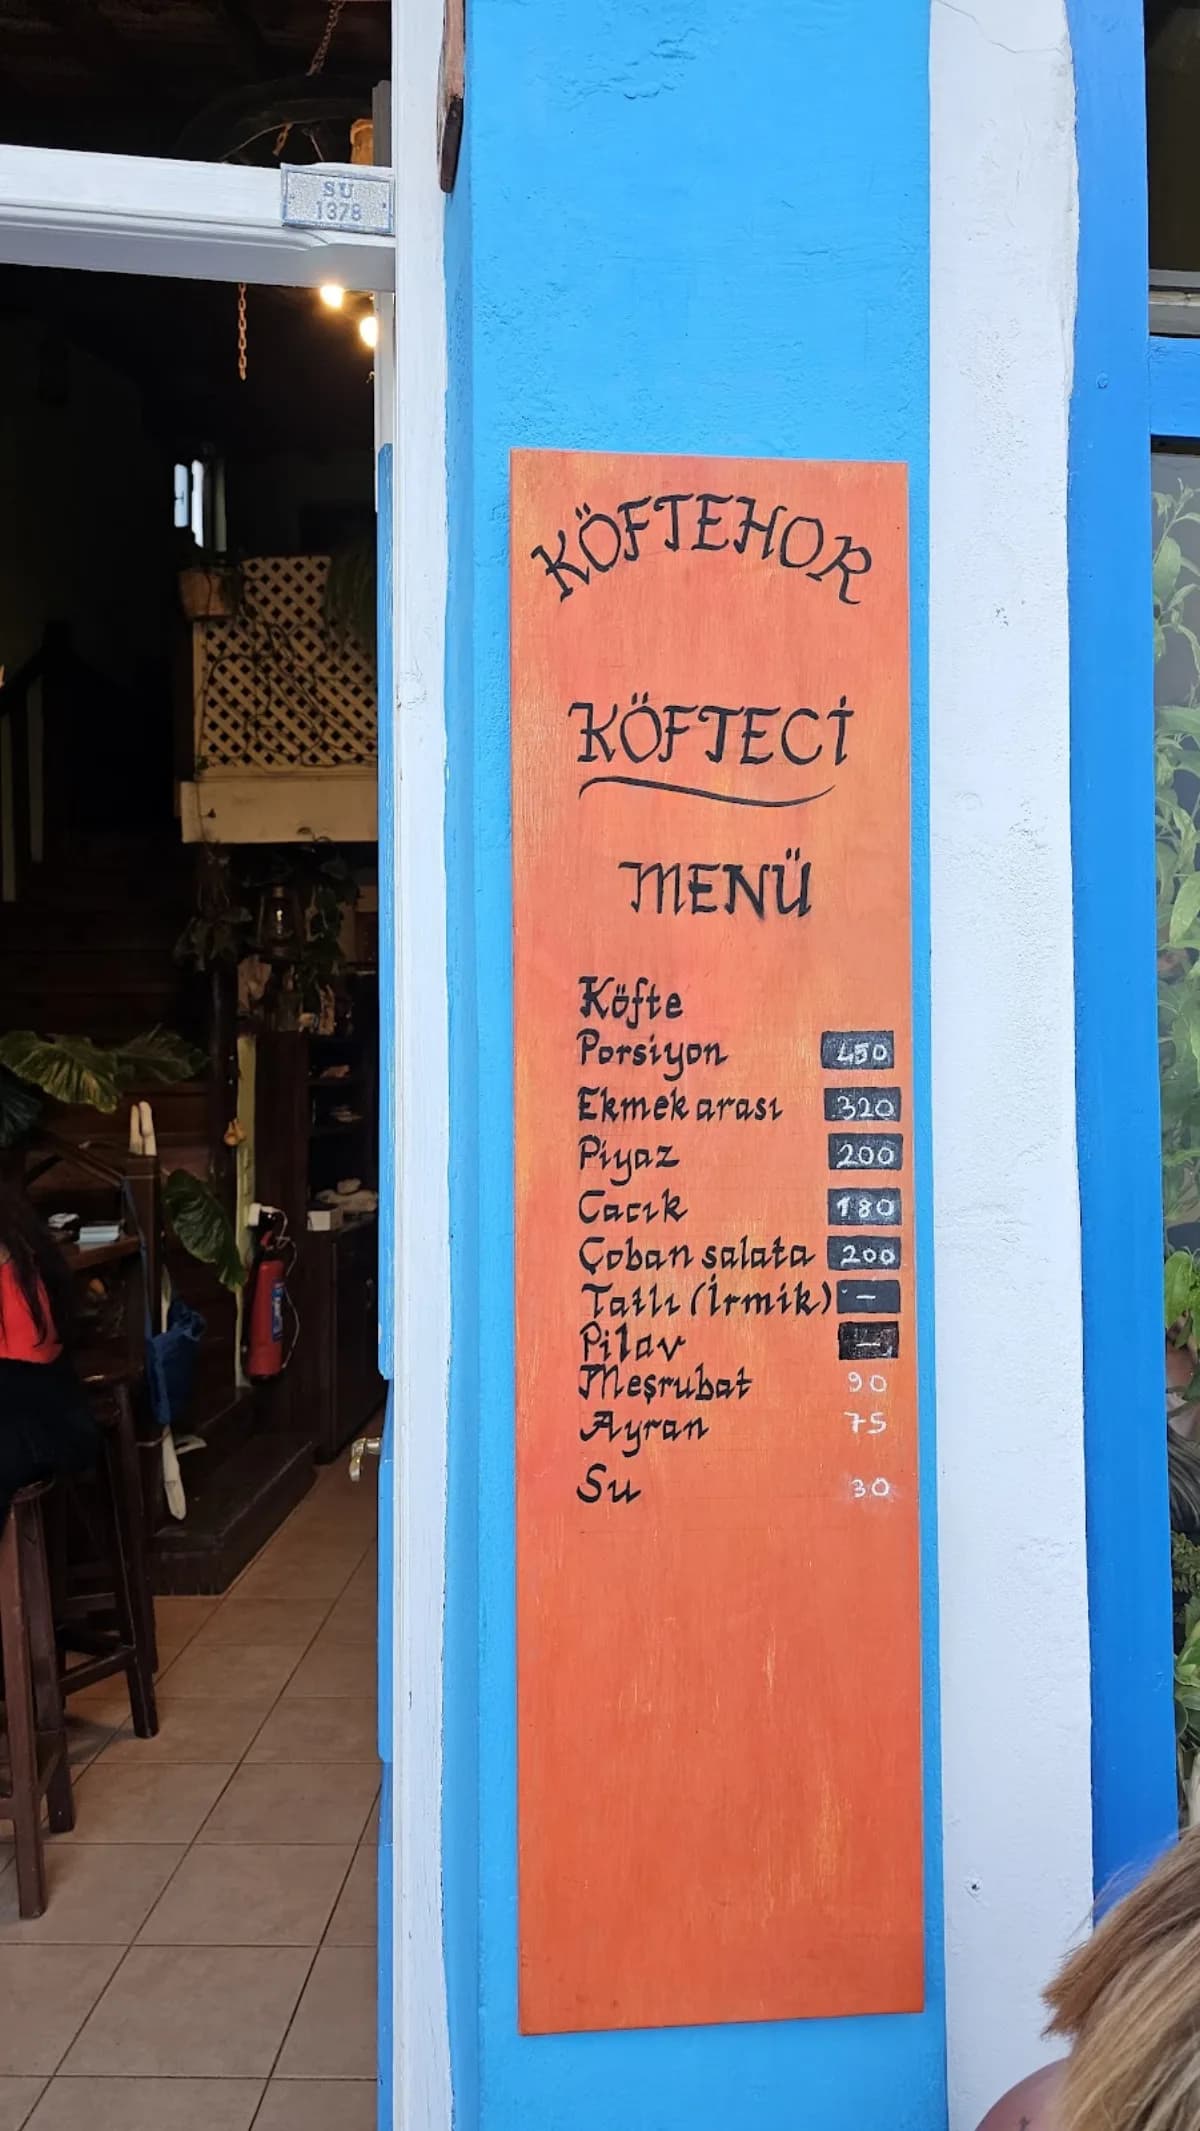 SU
1378
KÖFTEHOR
KÖFTECİ
MENÜ
Köfte
Porsiyon 450
Ekmek arası 320
Piyaz 200
Cacık 180
Çoban salata 200
Tatlı (İrmik) -
Pilav -
Meşrubat 90
Ayran 75
Su 30